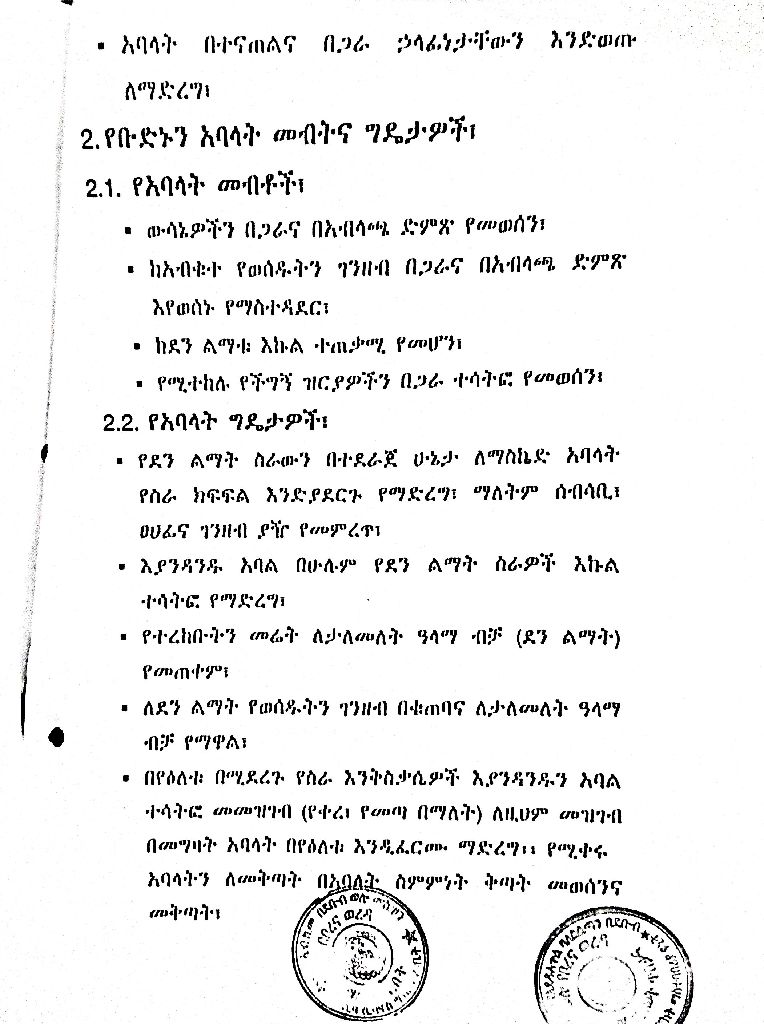 ▪ አባላት በተናጠልና በጋራ ኃላፊነታቸውን እንድወጡ
ለማድረግ፣
2. የቡድኑን አባላት መብትና ግዴታዎች፣
2.1. የአባላት መብቶች፣
▪ ውሳኔዎችን በጋራና በአብላጫ ድምጽ የመወሰን፣
▪ ከአብቁተ የወሰዱትን ገንዘብ በጋራና በአብላጫ ድምጽ
እየወሰኑ የማስተዳደር፣
▪ ከደን ልማቱ እኩል ተጠቃሚ የመሆን፣
▪ የሚተከሉ የችግኝ ዝርያዎችን በጋራ ተሳትፎ የመወሰን፣
2.2. የአባላት ግዴታዎች፣
▪ የደን ልማት ስራውን በተደራጀ ሁኔታ ለማስኬድ አባላት
የስራ ክፍፍል እንድያደርጉ የማድረግ፣ ማለትም ሰብሳቢ፣
ፀሀፊና ገንዘብ ያዥ የመምረጥ፣
▪ እያንዳንዱ አባል በሁሉም የደን ልማት ስራዎች እኩል
ተሳትፎ የማድረግ፣
▪ የተረከቡትን መሬት ለታለመለት ዓላማ ብቻ (ደን ልማት)
የመጠቀም፣
▪ ለደን ልማት የወሰዱትን ገንዘብ በቁጠባና ለታለመለት ዓላማ
ብቻ የማዋል፣
▪ በየዕለቱ በሚደረጉ የስራ እንቅስቃሴዎች እያንዳንዱን አባል
ተሳትፎ መመዝገብ (የቀረ፣ የመጣ በማለት) ለዚህም መዝገብ
በመግዛት አባላት በየዕለቱ እንዲፈርሙ ማድረግ፡፡ የሚቀሩ
አባላትን ለመቅጣት በአባላት ስምምነት ቅጣት መወሰንና
መቅጣት፣
በቦረና ወረዳ